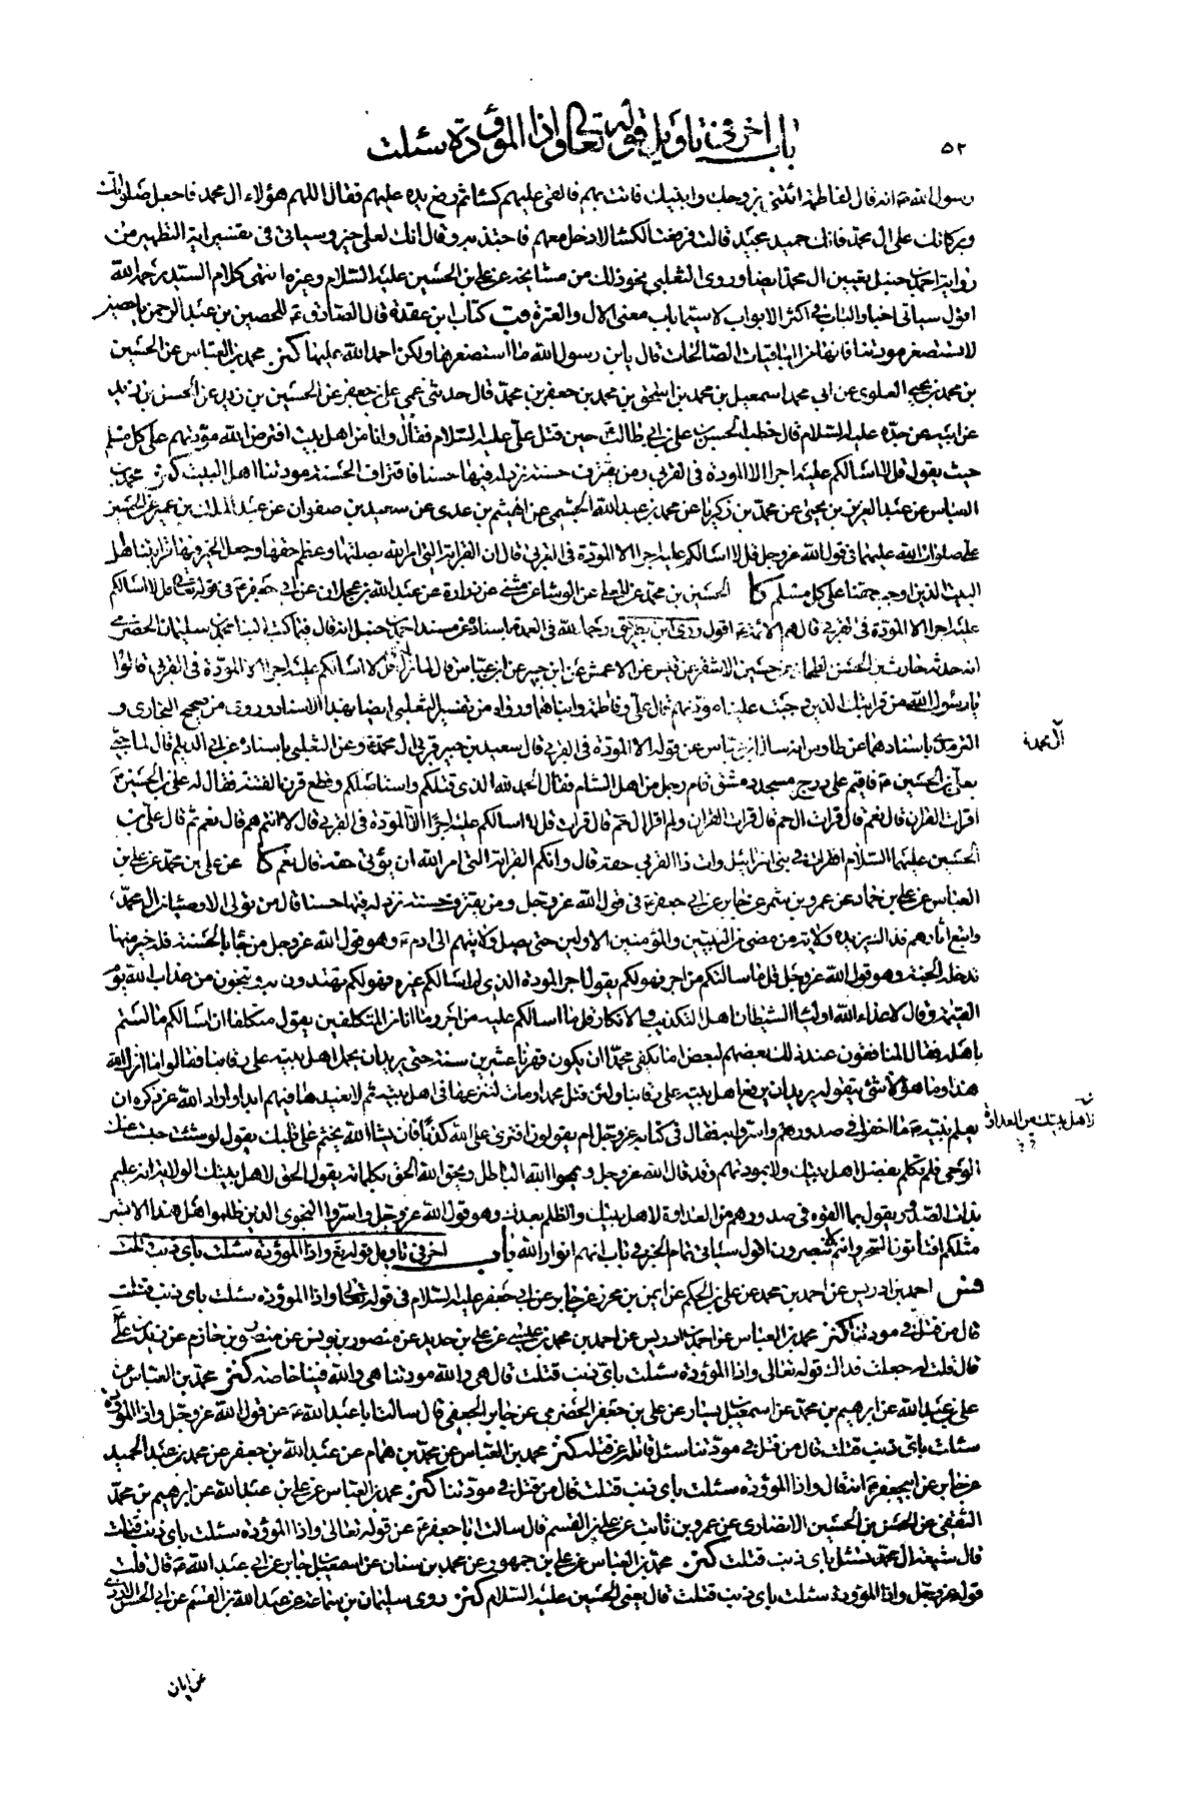 ٥٢
باب اخر فى تاويل قوله تعالى واذا الموؤدة سئلت
رسول الله انه قال لفاطمة ائتنى بزوجك وابنيك فاتت بهم فالقى عليهم كساء ثم رفع يده عليهم فقال اللهم هؤلاء ال محمد فاجعل صلواتك
وبركاتك على ال محمد فانك حميد مجيد قالت فرفعت الكساء لادخل معهم فاجتذبه وقال انك لعلى خير وسياتى فى تفسير اية التطهير من
رواية احمد بن حنبل تعيين ال محمد ايضا وروى الثعلبى نحو ذلك من مشايخه عن على بن الحسين عليه السلام وغيره انتهى كلام السيد رحمه الله
اقول سياتى اخبار الباب فى اكثر الابواب لا سيما باب معنى الال والعترة قب كتاب ابن عقدة قال الصادق ع للحصين بن عبد الرحمن يا حصين
لا تستصغر مودتنا فانها من الباقيات الصالحات قال يابن رسول الله ما استصغرها ولكن احمد الله عليها كنز محمد بن العباس عن الحسين
بن محمد بن يحيى العلوى عن ابى محمد اسمعيل بن محمد بن اسحق بن محمد بن جعفر بن محمد قال حدثنى عمى على بن جعفر عن الحسين بن زيد عن الحسن بن زيد
عن ابيه عن جده عليه السلام قال خطب الحسن بن على بن ابى طالب حين قتل على عليه السلام فقال وانا من اهل بيت افترض الله مودتهم على كل مسلم
حيث يقول قل لا اسالكم عليه اجرا الا المودة فى القربى ومن يقترف حسنة نزد له فيها حسنا فاقتراف الحسنة مودتنا اهل البيت كنز محمد بن
العباس عن عبد العزيز بن يحيى عن محمد بن زكريا عن محمد بن عبد الله الجشمى عن الهيثم بن عدى عن سعيد بن صفوان عن عبد الملك بن عمير عن الحسين
على صلوات الله عليهما فى قول الله عز وجل قل لا اسالكم عليه اجرا الا المودة فى القربى قال ان القرابة التى امر الله بصلتها وعظم حقها وجعل الخير فيها قرابتنا اهل
البيت الذين اوجب حقنا على كل مسلم كا الحسين بن محمد عن المعلى عن الوشا عن مثنى عن زرارة عن عبد الله بن عجلان عن ابى جعفر ع فى قوله تعالى قل لا اسالكم
عليه اجرا الا المودة فى القربى قال هم الائمة ع اقول روى ابن بطريق رحمه الله فى العمدة باسناده عن مسند احمد بن حنبل انه قال فيما كتب الينا محمد بن سليمان الحضرمى
انه حدثه حارث بن الحسن الطحان عن حسين الاشقر عن قيس عن الاعمش عن ابن جبير عن ابن عباس قال لما نزل قل لا اسالكم عليه اجرا الا المودة فى القربى قالوا
يا رسول الله من قرابتك الذين وجبت علينا مودتهم قال على وفاطمة وابناهما ورواه من تفسير الثعلبى ايضا بهذا الاسناد وروى من صحيح البخارى و
الترمذى باسنادهما عن طاوس انه سال ابن عباس عن قوله الا المودة فى القربى قال سعيد بن جبير قربى ال محمد ع وعن الثعلبى باسناده عن ابى الديلم قال لما جئ
بعلى بن الحسين ع فاقيم على درج مسجد دمشق قام رجل من اهل الشام فقال الحمد لله الذى قتلكم واستاصلكم وقطع قرن الفتنة فقال له على بن الحسين ع
اقرات القران قال نعم قال قرات ال حم قال قرات القران ولم اقرا ال حم قال قرات قل لا اسالكم عليه اجرا الا المودة فى القربى قال لانتم هم قال نعم ثم قال على بن
الحسين عليهما السلام اقرات فى بنى اسرائيل وات ذا القربى حقه قال وانكم القرابة التى امر الله ان يؤتى حقه قال نعم كا عن على بن محمد عن على بن
العباس عن على بن حماد عن عمرو بن شمر عن جابر عن ابى جعفر ع فى قول الله عز وجل ومن يقترف حسنة نزد له فيها حسنا قال من تولى الاوصياء من ال محمد
واتبع اثارهم فذاك يزيده ولاية من مضى من النبيين والمؤمنين الاولين حتى يصل ولايتهم الى ادم ع وهو قول الله عز وجل من جاء بالحسنة فله خير منها
ندخله الجنة وهو قول الله عز وجل قل ما سالتكم من اجر فهو لكم يقول اجر المودة الذى لم اسالكم غيره فهو لكم تهتدون به وتنجون من عذاب الله يوم
القيمة وقال لاعداء الله اولياء الشيطان اهل التكذيب والانكار قل ما اسالكم عليه من اجر وما انا من المتكلفين يقول متكلفا ان اسالكم ما لستم
باهله فقال المنافقون عند ذلك بعضهم لبعض اما يكفى محمدا ان يكون قهرنا عشرين سنة حتى يريد ان يحمل اهل بيته على رقابنا فقالوا ما انزل الله
هذا وما هو الا شئ يتقوله يريد ان يرفع اهل بيته على رقابنا ولئن قتل محمد او مات لننزعنها فى اهل بيته ثم لا نعيدها فيهم ابدا واراد الله عز ذكره ان
يعلم نبيه ص ما اخفوا فى صدورهم واسروا به فقال فى كتابه عز وجل ام يقولون افترى على الله كذبا فان يشا الله يختم على قلبك يقول لو شئت حبست عنك
الوحى فلم تكلم بفضل اهل بيتك ولا بمودتهم وقد قال الله عز وجل ويمحو الله الباطل ويحق الله الحق بكلماته يقول الحق لاهل بيتك الولاية انه عليم
بذات الصدور ويقول بما القوه فى صدورهم من العداوة لاهل بيتك والظلم بعدك وهو قول الله عز وجل واسروا النجوى الذين ظلموا هل هذا الا بشر
مثلكم افتاتون السحر وانتم تبصرون اقول سياتى تمام الخبر فى باب انهم انوار الله باب اخر فى تاويل قوله تع واذا الموؤدة سئلت باى ذنب قتلت
فس احمد بن ادريس عن احمد بن محمد عن على بن الحكم عن ايمن بن محرز عن جابر عن ابى جعفر عليه السلام فى قوله تعالى واذا الموؤدة سئلت باى ذنب قتلت
قال من قتل فى مودتنا كنز محمد بن العباس عن احمد بن ادريس عن احمد بن محمد بن عيسى عن على بن حديد عن منصور بن يونس عن منصور بن حازم عن زيد بن على
قال قلت له جعلت فداك قوله تعالى واذا الموؤدة سئلت باى ذنب قتلت قال هى والله مودتنا هى والله فينا خاصة كنز محمد بن العباس عن
على بن عبد الله عن ابرهيم بن محمد عن اسمعيل بن يسار عن على بن جعفر الحضرمى عن جابر الجعفى قال سالت ابا عبد الله ع عن قول الله عز وجل واذا الموؤدة
سئلت باى ذنب قتلت قال من قتل فى مودتنا سئل قاتله عن قتله كنز محمد بن العباس عن محمد بن همام عن عبد الله بن جعفر عن محمد بن عبد الحميد
عن جابر عن ابى جعفر ع انه قال واذا الموؤدة سئلت باى ذنب قتلت قال من قتل فى مودتنا كنز محمد بن العباس عن على بن عبد الله عن ابرهيم بن محمد
الثقفى عن الحسن بن الحسين الانصارى عن عمرو بن ثابت عن على بن القسم قال سالت ابا جعفر ع عن قوله تعالى واذا الموؤدة سئلت باى ذنب قتلت
قال شيعة ال محمد تسئل باى ذنب قتلت كنز محمد بن العباس عن على بن جمهور عن محمد بن سنان عن اسمعيل بن جابر عن ابى عبد الله ع قال قلت
قوله عز وجل واذا الموؤدة سئلت باى ذنب قتلت قال يعنى الحسين عليه السلام كنز روى سليمان بن سماعة عن عبد الله بن القسم عن ابى الحسن الازدى
ال محمد
لاهل بيتك من العداوة
عن ابان